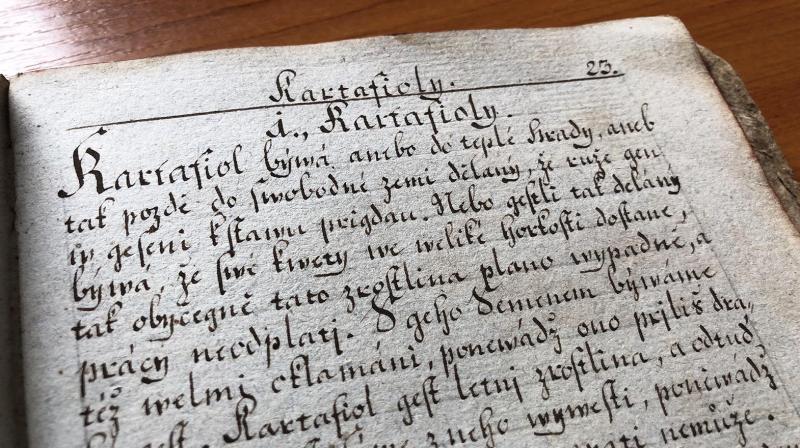 Kartafioly. 23.
1., Kartafioly.
Kartafiol býwá anebo do teplé hrady, aneb
tak pozdě do swobodné zemi dělaný, že růže gen
w geseni k stawu přigdau. Nebo gestli tak dělaný
býwá, že swé kwěty we weliké horkosti dostane,
tak obyčegně tato zrostlina plano wypadne, a
prácy neodplatj. S geho Semenem býwáme
též welmi oklamáni, poněwádž ono přjliš dra,
gest. Kartafiol gest letnj zrostlina, a odtud
z něho wywesti, poněwádž
nemůže.